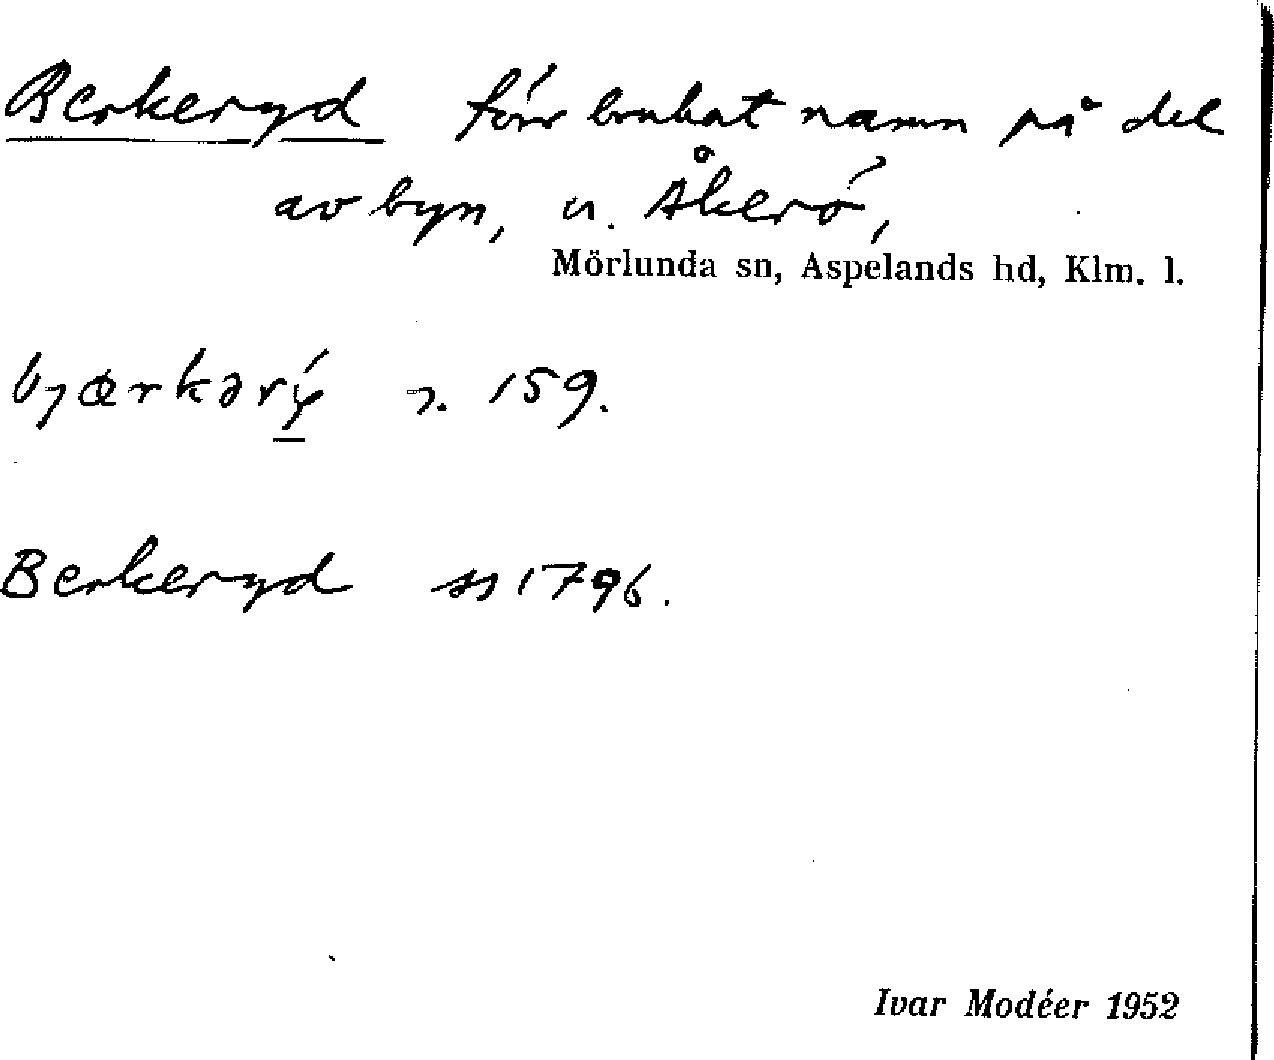 Berkeryd förr brukat namn på del
av byn, n. Åkerö,
Mörlunda sn, Aspelands hd, Klm. l.
bjærkarý 159.
Berkeryd 1796.
Ivar Modéer 1952